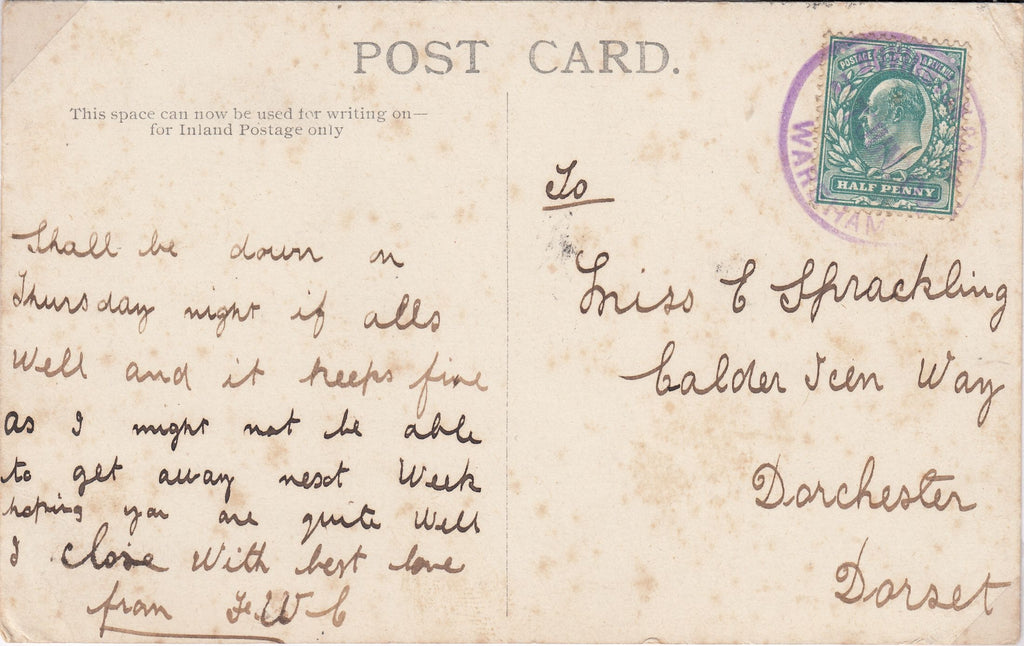 POST CARD.
This space can now be used for writing on—
for Inland Postage only
Shall be down on
Thursday night if alls
Well and it keeps fine
as I might not be able
to get away next Week
hoping you are quite Well
I close With best love
from F W C
To
Miss E Sprackling
Calder Icen Way
Dorchester
Dorset
POSTAGE & REVENUE
HALF PENNY
WAREHAM